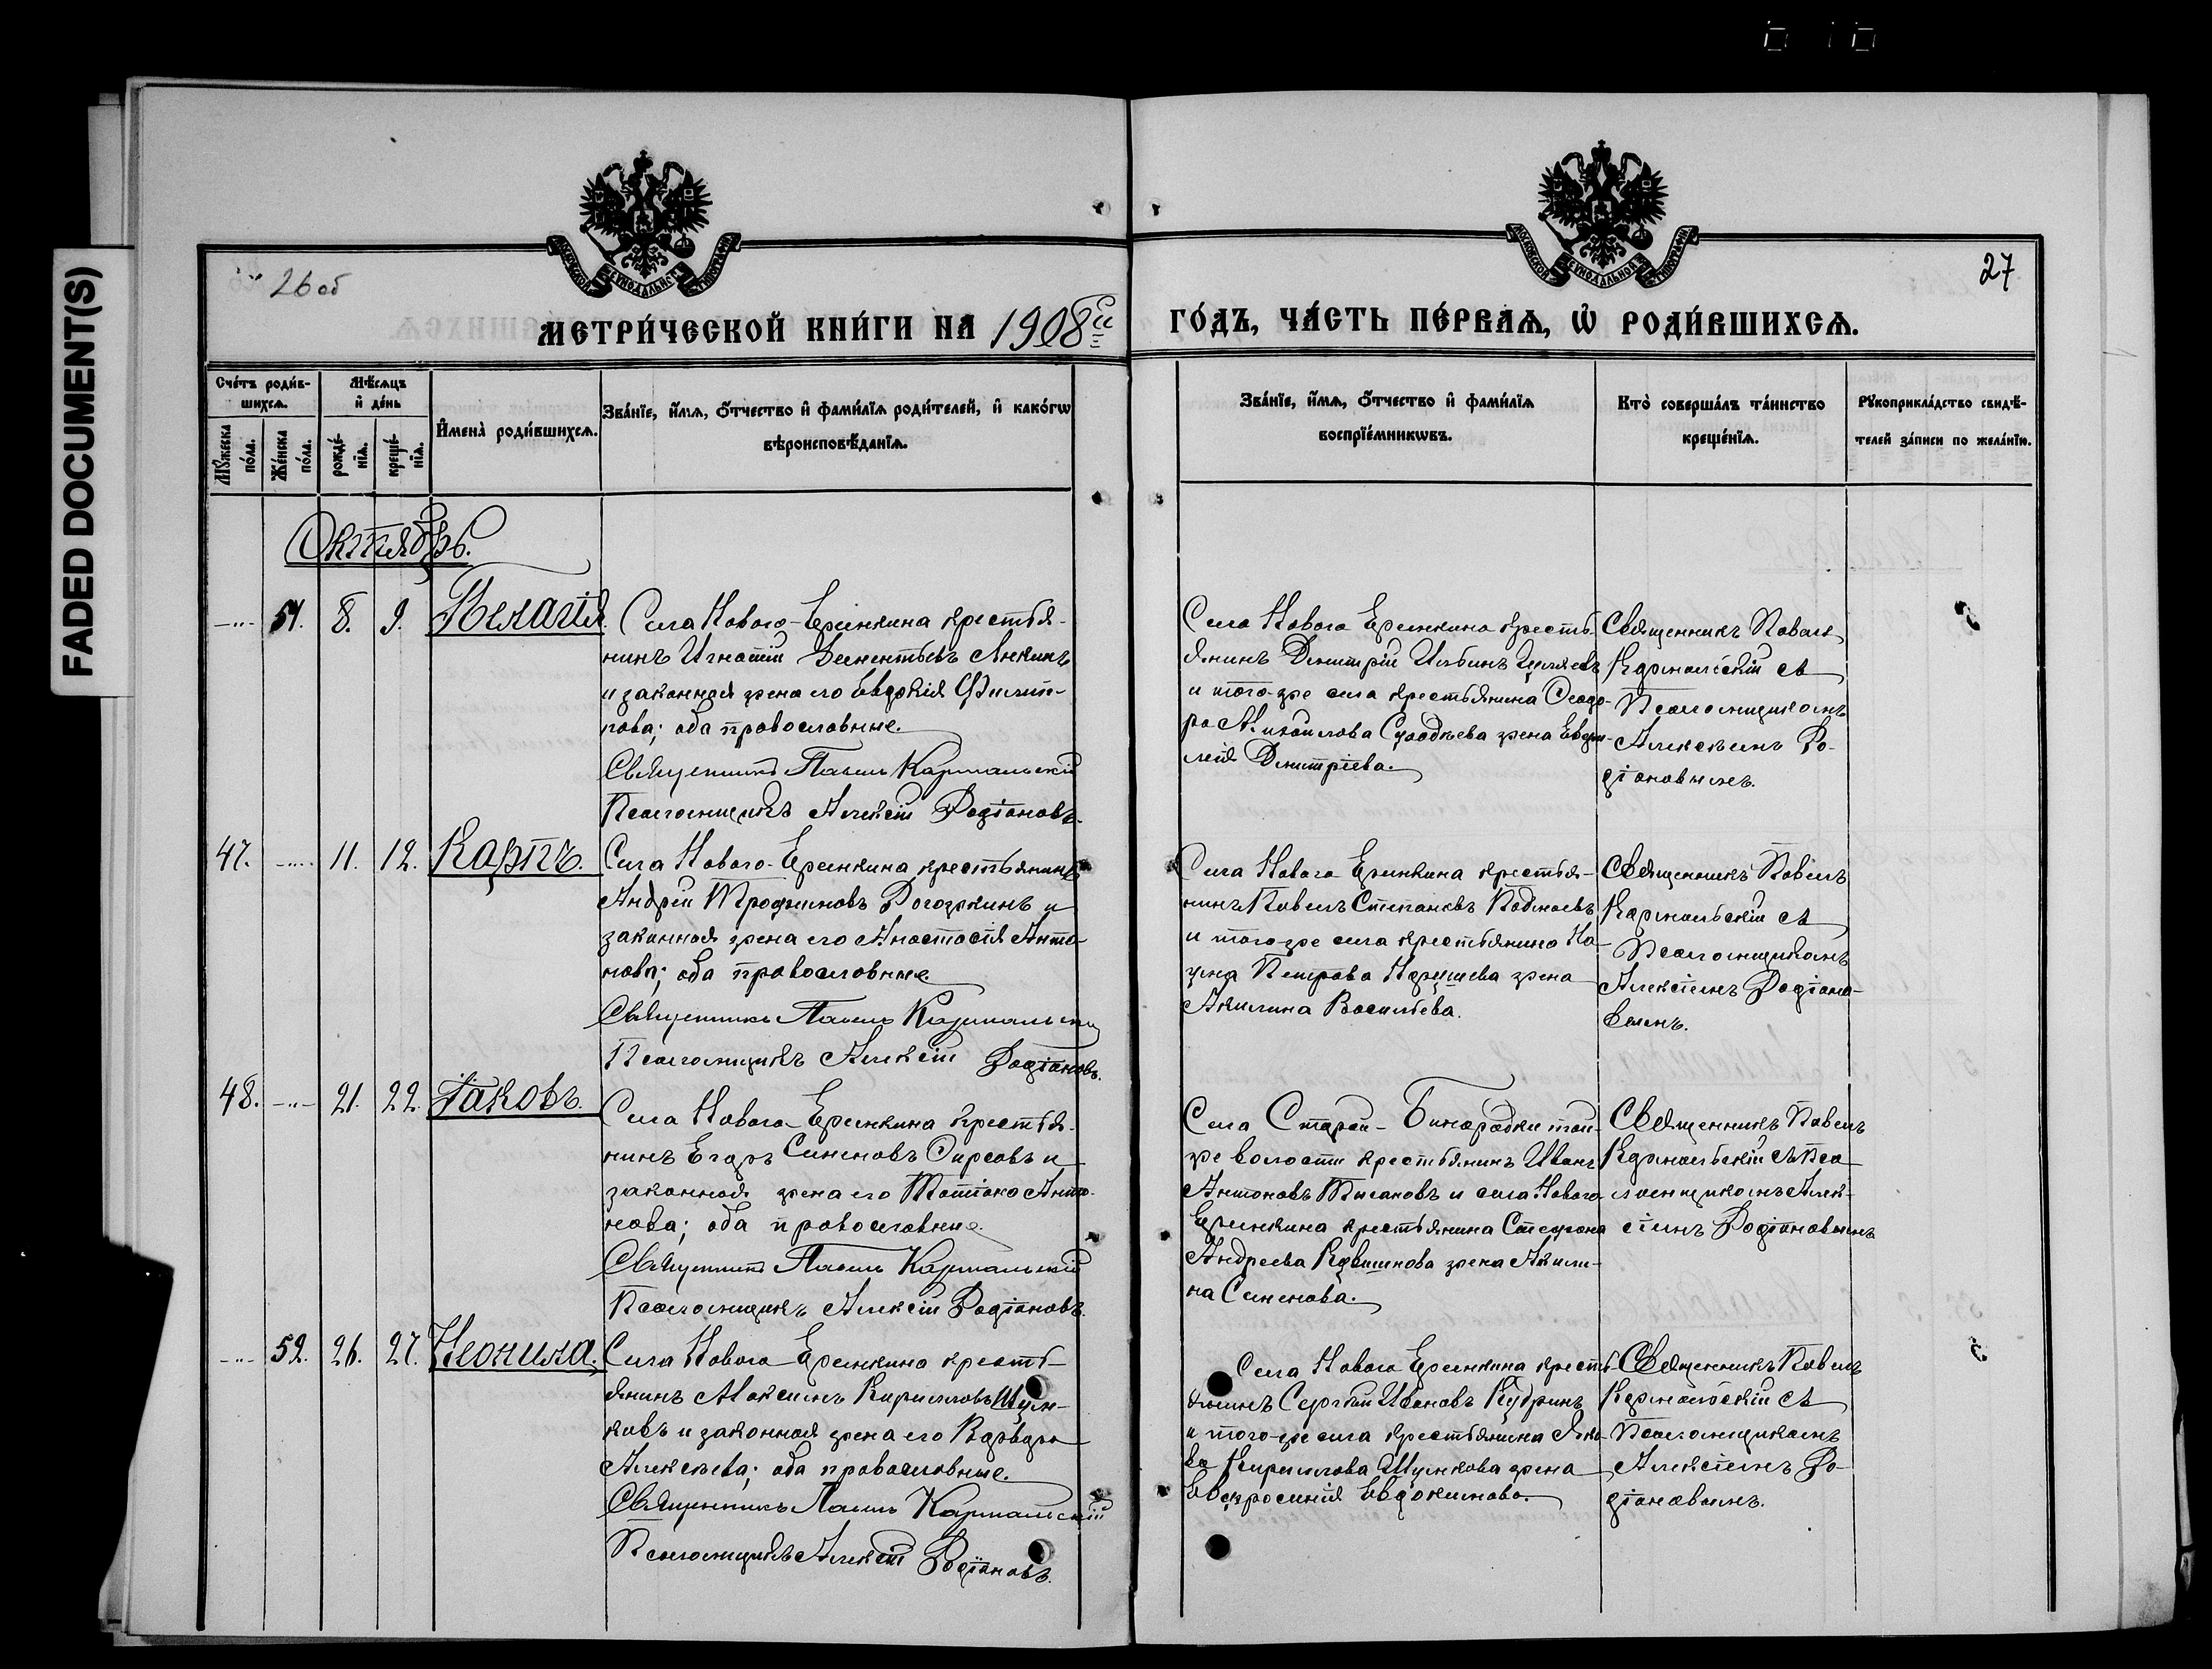 FADED DOCUMENT(S)
26 об
27
МОСКОВСКОЙ СѴНОДАЛЬНОЙ ТИПОГРАФІИ
МОСКОВСКОЙ СѴНОДАЛЬНОЙ ТИПОГРАФІИ
МЕТРИ́ЧЕСКОЙ КНИ́ГИ НА 1908й
ГО́ДЪ, ЧА́СТЬ ПЕ́РВАѦ, Ѡ҆ РОДИ́ВШИХСѦ.
Сче́тъ роди́в-
шихсѧ.
Мѣ́сѧцъ
и҆ де́нь
Мꙋ́жеска
по́ла.
Же́нска
по́ла.
рожде́-
нїѧ.
креще́-
нїѧ.
И҆мена̀ роди́вшихсѧ.
Зва́нїе, и҆́мѧ, ѻ҆́тчество и҆ фами́лїѧ роди́телей, и҆ како́гѡ
вѣроисповѣ́данїѧ.
Зва́нїе, и҆́мѧ, ѻ҆́тчество и҆ фами́лїѧ
воспрїе́мникѡвъ.
Кто̀ соверша́лъ та́инство
креще́нїѧ.
Рꙋкоприкла́дство свидѣ́-
телей за́писи по жела́нїю.
Октябрь.
51. 8. 9. Пелагія.
Села Нового-Еремкина крестья-
нинъ Игнатій Дементьевъ Янкинъ
и законная жена его Евдокія Филип-
пова; оба православные.
Священникъ Павелъ Кармальскій
Псаломщикъ Алексій Родіоновъ.
Села Нового Еремкина кресть-
янинъ Димитрій Ильинъ
и того-же села крестьянина Ѳеодо-
ра Михайлова жена Евфи-
мія Димитріева.
Священникъ Павелъ
Кармальскій съ
Псаломщикомъ
Алексѣемъ Ро-
діоновымъ.
47. 11. 12. Карпъ.
Села Нового-Еремкина крестьянинъ
Андрей Трофимовъ Рогожкинъ и
законная жена его Анастасія Анто-
нова; оба православные
Священникъ Павелъ Кармальскій
Псаломщикъ Алексій Родіоновъ.
Села Нового Еремкина крестья-
нинъ Павелъ Степановъ
и того-же села крестьянина На-
ума Петрова жена
Акилина Васильева.
Священникъ Павелъ
Кармальскій съ
Псаломщикомъ
Алексіемъ Родіоно-
вымъ.
48. 21. 22. Іаковъ.
Села Нового Еремкина крестья-
нинъ Егоръ Симеоновъ Фирсовъ и
законная жена его Татіана Анто-
нова; оба православные.
Священникъ Павелъ Кармальскій
Псаломщикъ Алексій Родіоновъ.
Села Старой-Бинарадки той-
же волости крестьянинъ Иванъ
Антоновъ и села Нового
Еремкина крестьянина Стефана
Андреева жена Акили-
на Семенова.
Священникъ Павелъ
Кармальскій съ Пса-
ломщикомъ Алек-
сіемъ Родіоновымъ
52. 26. 27. Неонила.
Села Нового Еремкина кресть-
янинъ Максимъ Кирилловъ Шум-
ковъ и законная жена его Варвара
Алексѣева; оба православные.
Священникъ Павелъ Кармальскій
Псаломщикъ Алексій Родіоновъ.
Села Нового Еремкина кресть-
янинъ Сергѣй Ивановъ Кудринъ
и того-же села крестьянина Яко-
ва Кириллова Шумкова жена
Евфросинія Евдокимова.
Священникъ Павелъ
Кармальскій съ
Псаломщикомъ
Алексіемъ Ро-
діоновымъ.